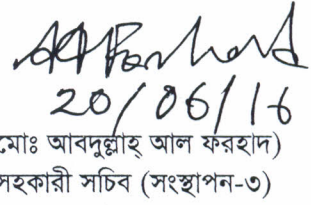 AAFarhad
20/06/16
মোঃ আবদুল্লাহ্ আল ফরহাদ)
সহকারী সচিব (সংস্থাপন-৩)